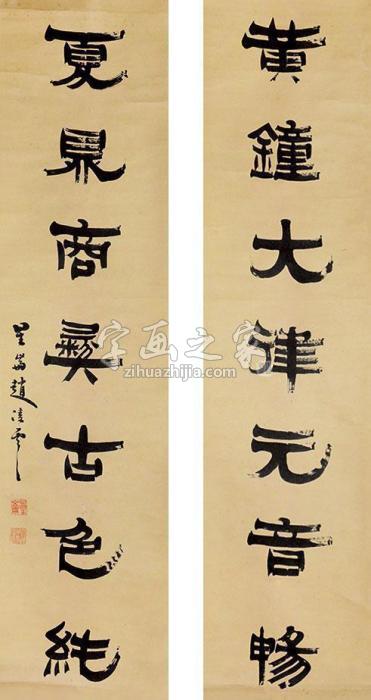 黄鐘大律元音暢
夏鼎商彝古色純
趙
字画之家
zihuazhijia.com